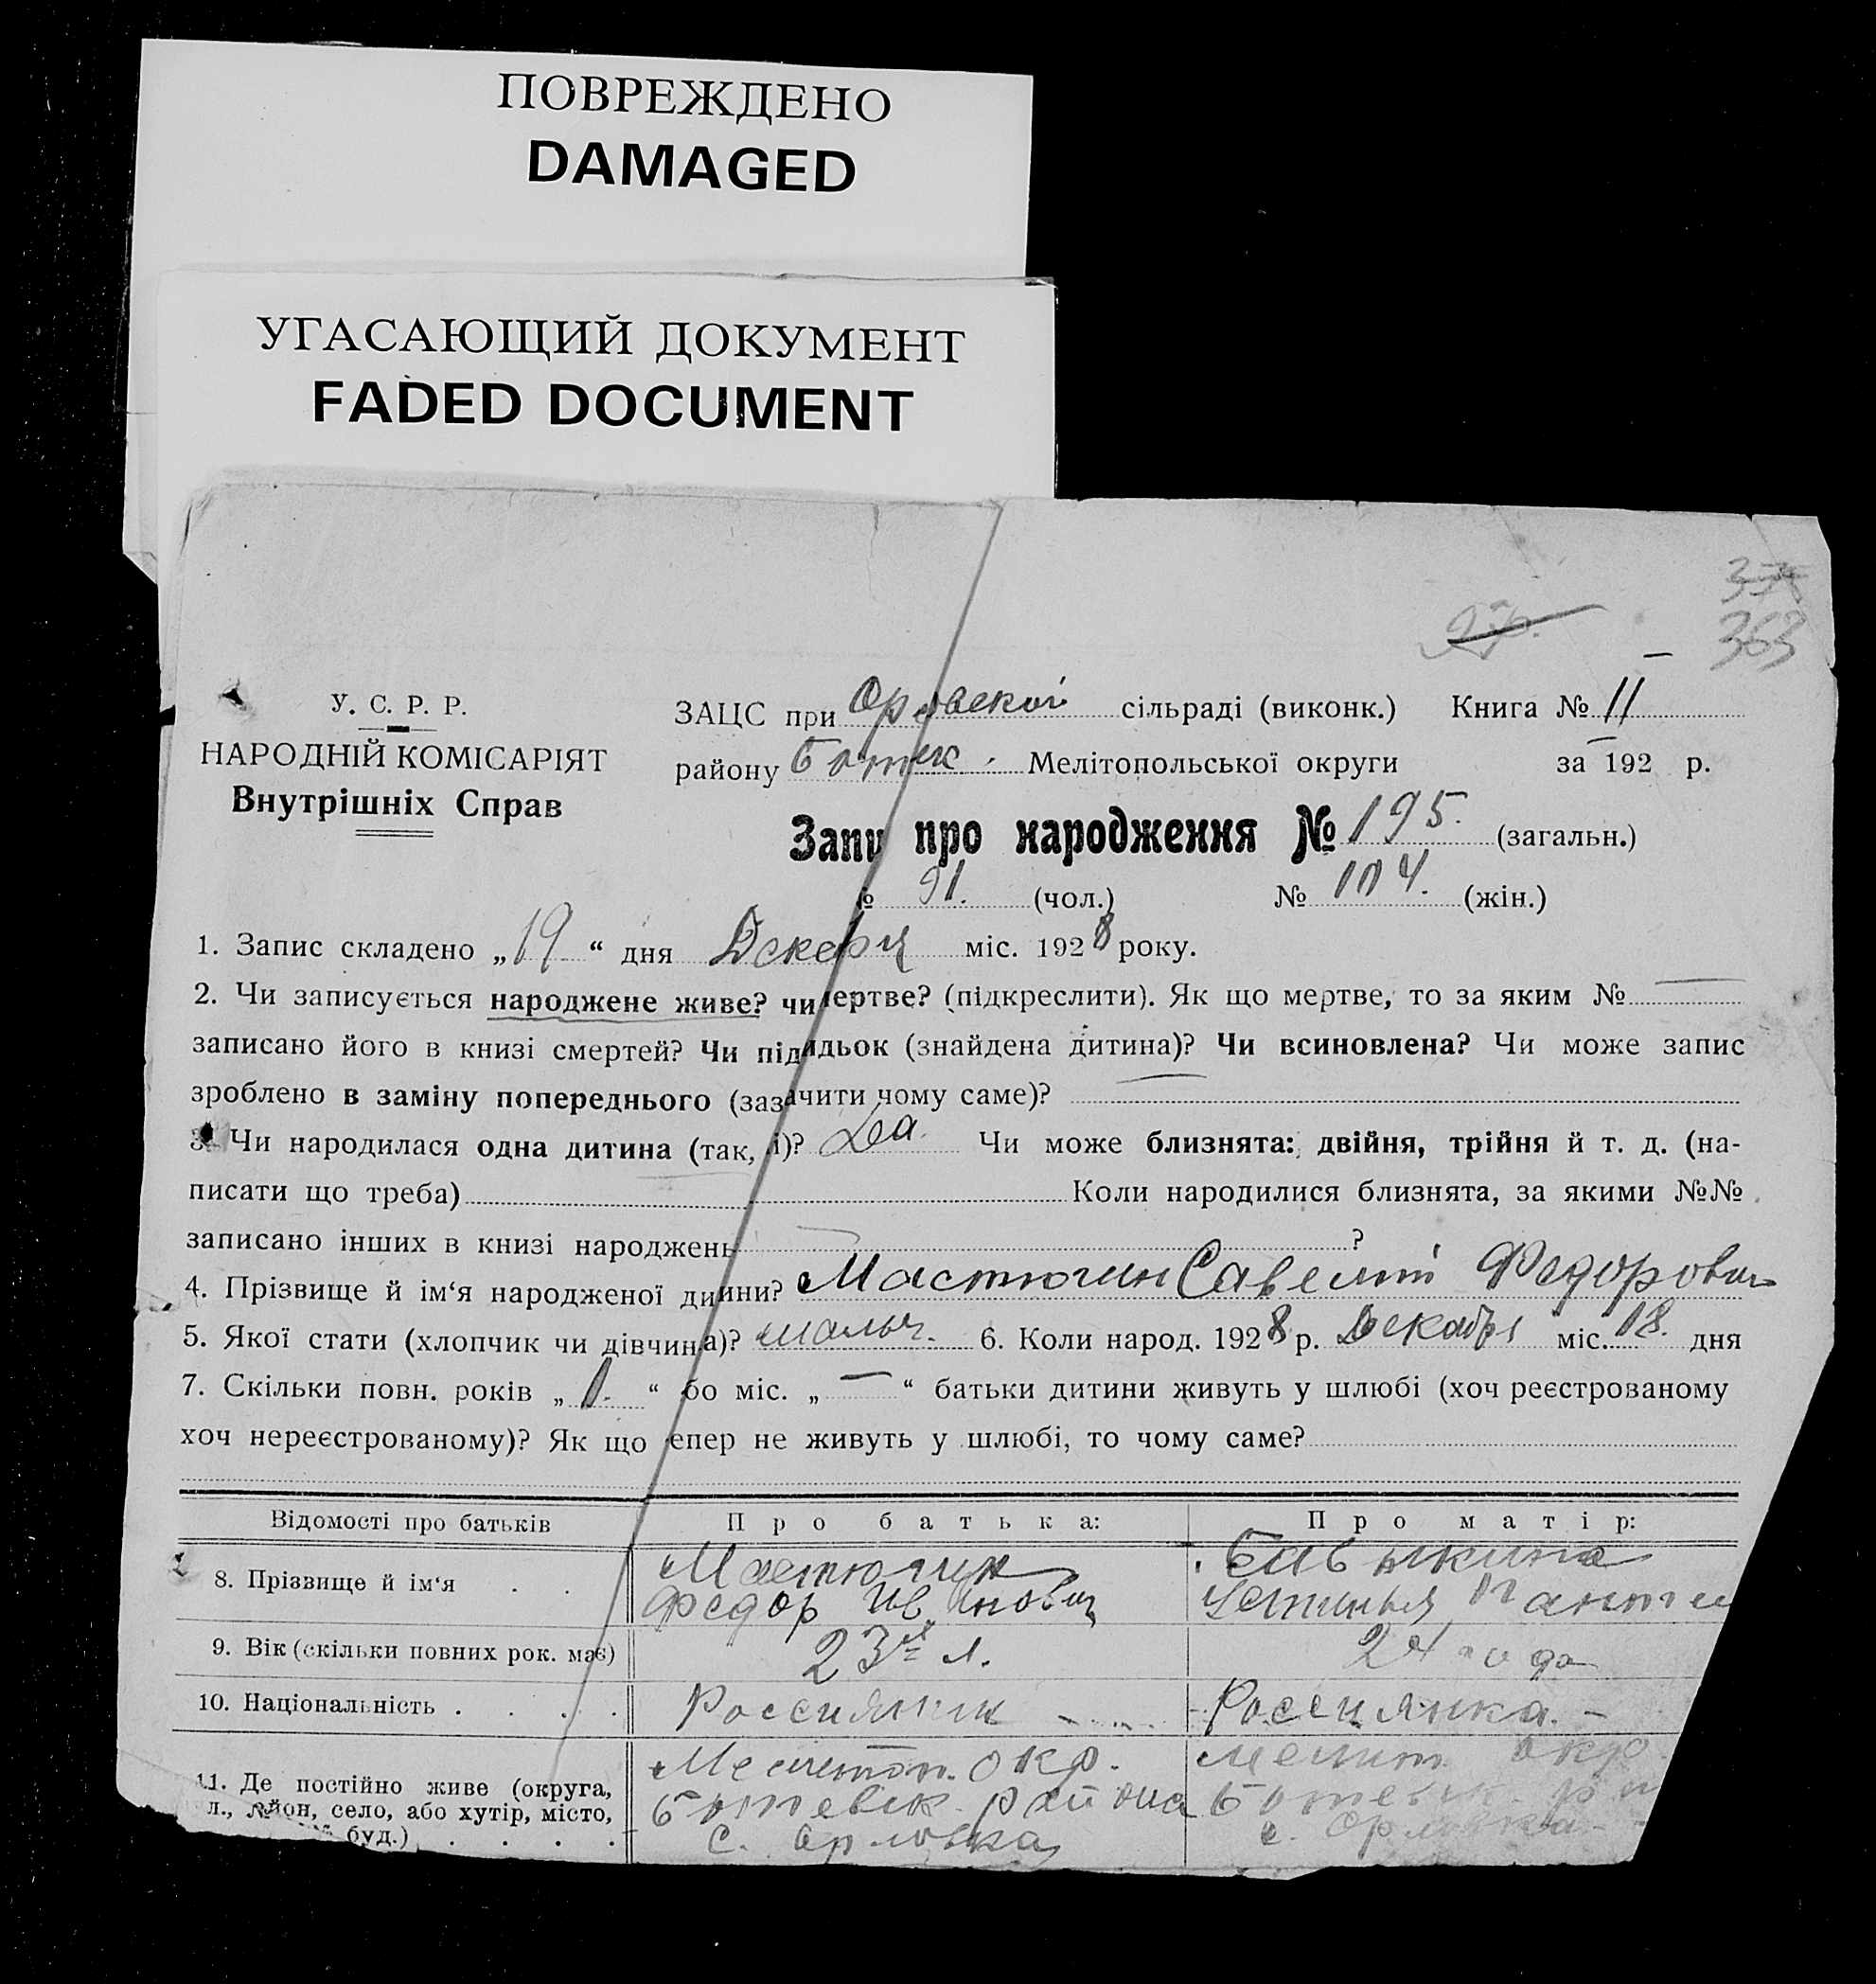 ПОВРЕЖДЕНО
DAMAGED
УГАСАЮЩИЙ ДОКУМЕНТ
FADED DOCUMENT
363
У. С. Р. Р.
НАРОДНІЙ КОМІСАРІЯТ
Внутрішніх Справ
ЗАЦС при Орловской сільраді (виконк.) Книга № 11
району Мелітопольської округи за 192 р.
Запи про народження № 195. (загальн.)
№ 91. (чол.) № 104. (жін.)
1. Запис складено „19“ дня Декабр міс. 1928 року.
2. Чи записується народжене живе? чи мертве? (підкреслити). Як що мертве, то за яким № —
записано його в книзі смертей? Чи підкидьок (знайдена дитина)? Чи всиновлена? Чи може запис
зроблено в заміну попереднього (зазачити чому саме)? —
3. Чи народилася одна дитина (так, і)? Да. Чи може близнята: двійня, трійня й т. д. (на-
писати що треба) Коли народилися близнята, за якими №№
записано інших в книзі народжень ?
4. Прізвище й ім‘я народженої дитини? Мастюгин Савелий Федорович
5. Якої стати (хлопчик чи дівчина)? мальч. 6. Коли народ. 1928 р. Декабря міс. 18. дня
7. Скільки повн. років „1.“ бо міс. „—“ батьки дитини живуть у шлюбі (хоч реєстрованому
хоч нереєстрованому)? Як що тепер не живуть у шлюбі, то чому саме?
Відомості про батьків Про батька: Про матір:
8. Прізвище й ім‘я Мастюгин
Федор Иванович
9. Вік (скільки повних рок. має) 23 л. 24 года
10. Національність Россиянин Россиянка. –
11. Де постійно живе (округа, Мелитоп. окр. Мелит. окр.
район, село, або хутір, місто, Ботевск. района Ботевск.
буд.) с. Орловка с. Орловка